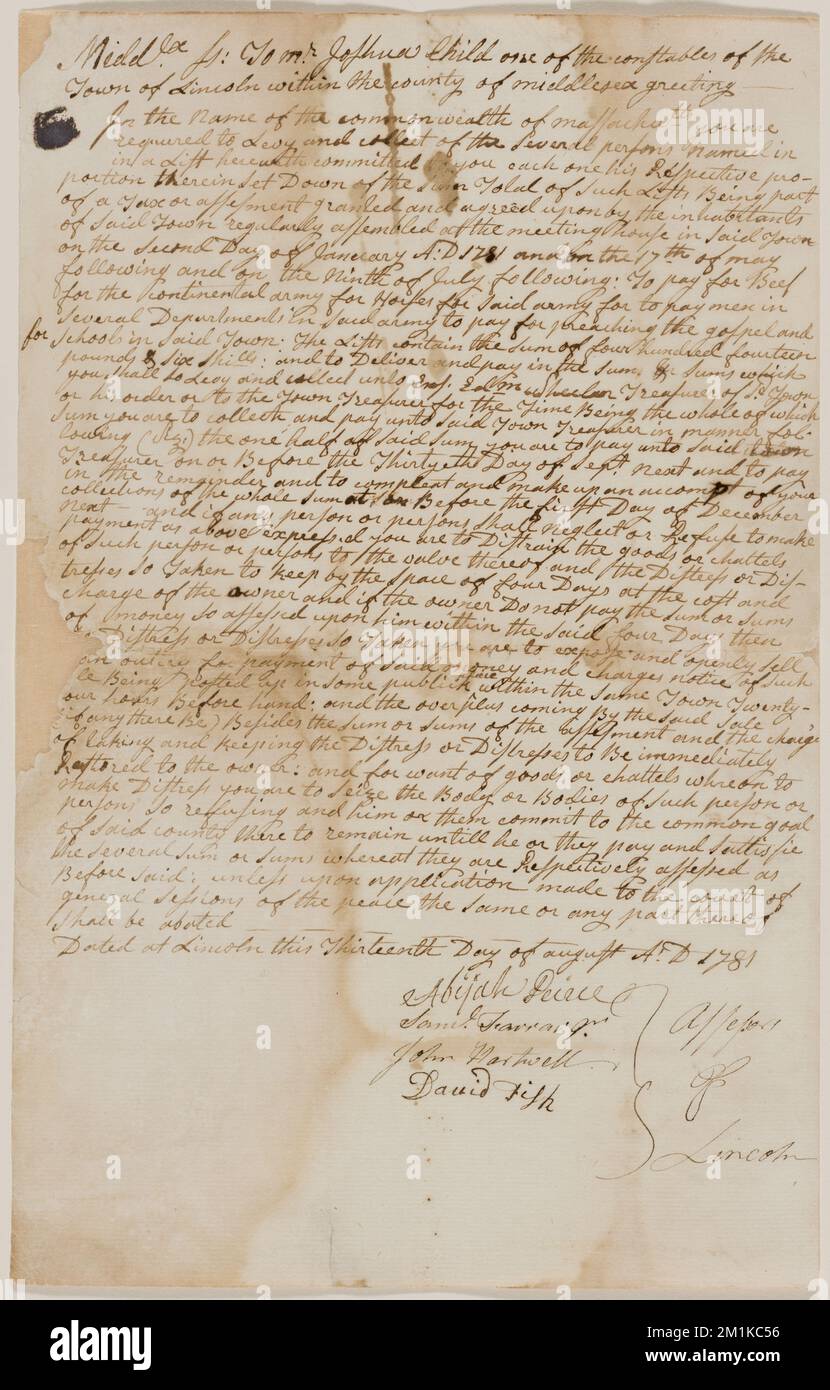 Midd.lx Ss: To mr. Joshua Child one of the constables of the
Town of Lincoln within the county of middlesex greeting —
In the Name of the commonwealth of massachts. you are
required to Levy and collect of the several persons Named in
in a List herewith committed to you each one his Respective pro-
portion therein set Down of the sum Total of such Lists Being part
of a Tax or assesment granted and agreed upon by the inhabitants
of said Town regularly assembled at the meeting house in said Town
on the Second Day of Janeuary A:D 1781 and on the 17th of may
following and on the Ninth of July following: To pay for Beef
for the Continental army for Horses for said army for to pay men in
several Departments in said army to pay for preaching the gospel and
for schools in said Town: The Lists contain the sum of four hundred fourteen
pounds & six shills: and to Deliver and pay in the sum & sums which
you shall so Levy and collect unto Ensj. Edm. Wheeler Treasurer of sd. Town
or his order or to the Town Treasurer for the Time Being the whole of which
sum you are to collect and pay unto said Town Treasurer in manner fol-
lowing (viz:) the one half of said sum you are to pay unto said Town
Treasurer on or Before the Thirtyeth Day of Sept. Next and to pay
in the remainder and to compleat and make up an accompt of your
collections of the whole sum at or on Before the first Day of December
next — and if any person or persons shall neglect or Refuse to make
payment as above expressed you are to Distrain the goods or chattels
of such person or persons to the value thereof and the Distress or Dis-
tresses so Taken to keep by the space of four Days at the cost and
charge of the owner and if the owner Do not pay the sum or sums
of money so assessed upon him within the said four Days then
Distress or Distresses so Taken you are to expose and openly sell
an outcry for payment of said money and charges notice of such
le Being Posted up in some publick place within the same Town Twenty-
our hours Before hand: and the overplus coming By the said sale
(if any there Be) Besides the sum or sums of the assesment and the charge
of taking and keeping the Distress or Distresses to Be immediately
Restored to the owner: and for want of goods or chattels whreon to
make Distress you are to seize the Body or Bodies of such person or
persons so refusing and him or them commit to the common goal
of said county there to remain untill he or they pay and sattisfie
the several sum or sums whereat they are Respectively assessed as
Before said: unless upon application made to the court of
general sessions of the peace the same or any part thereof
shall be abated
Dated at Lincoln this Thirteenth Day of august A:D 1781
Abijah Peirce
Saml. Farrar jnr
John Hartwell
David Fisk
Assesors
of
Lincoln
alamy
Image ID: 2M1KC56
www.alamy.com